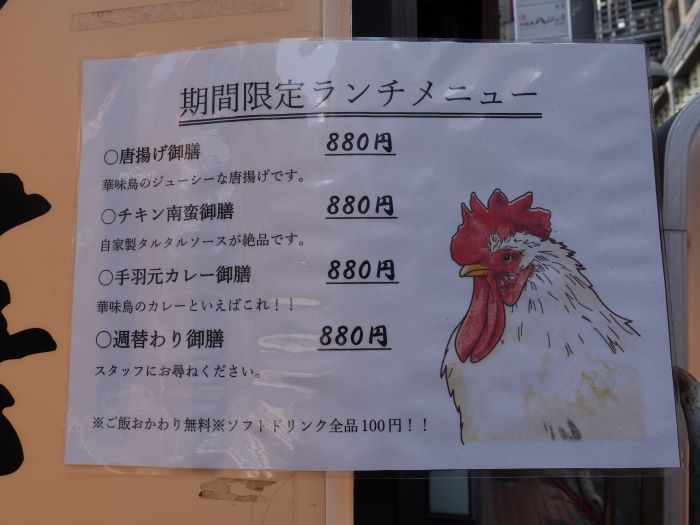 期間限定ランチメニュー
○唐揚げ御膳 880円
華味鳥のジューシーな唐揚げです。
○チキン南蛮御膳 880円
自家製タルタルソースが絶品です。
○手羽元カレー御膳 880円
華味鳥のカレーといえばこれ！！
○週替わり御膳 880円
スタッフにお尋ねください。
※ご飯おかわり無料※ソフトドリンク全品100円！！